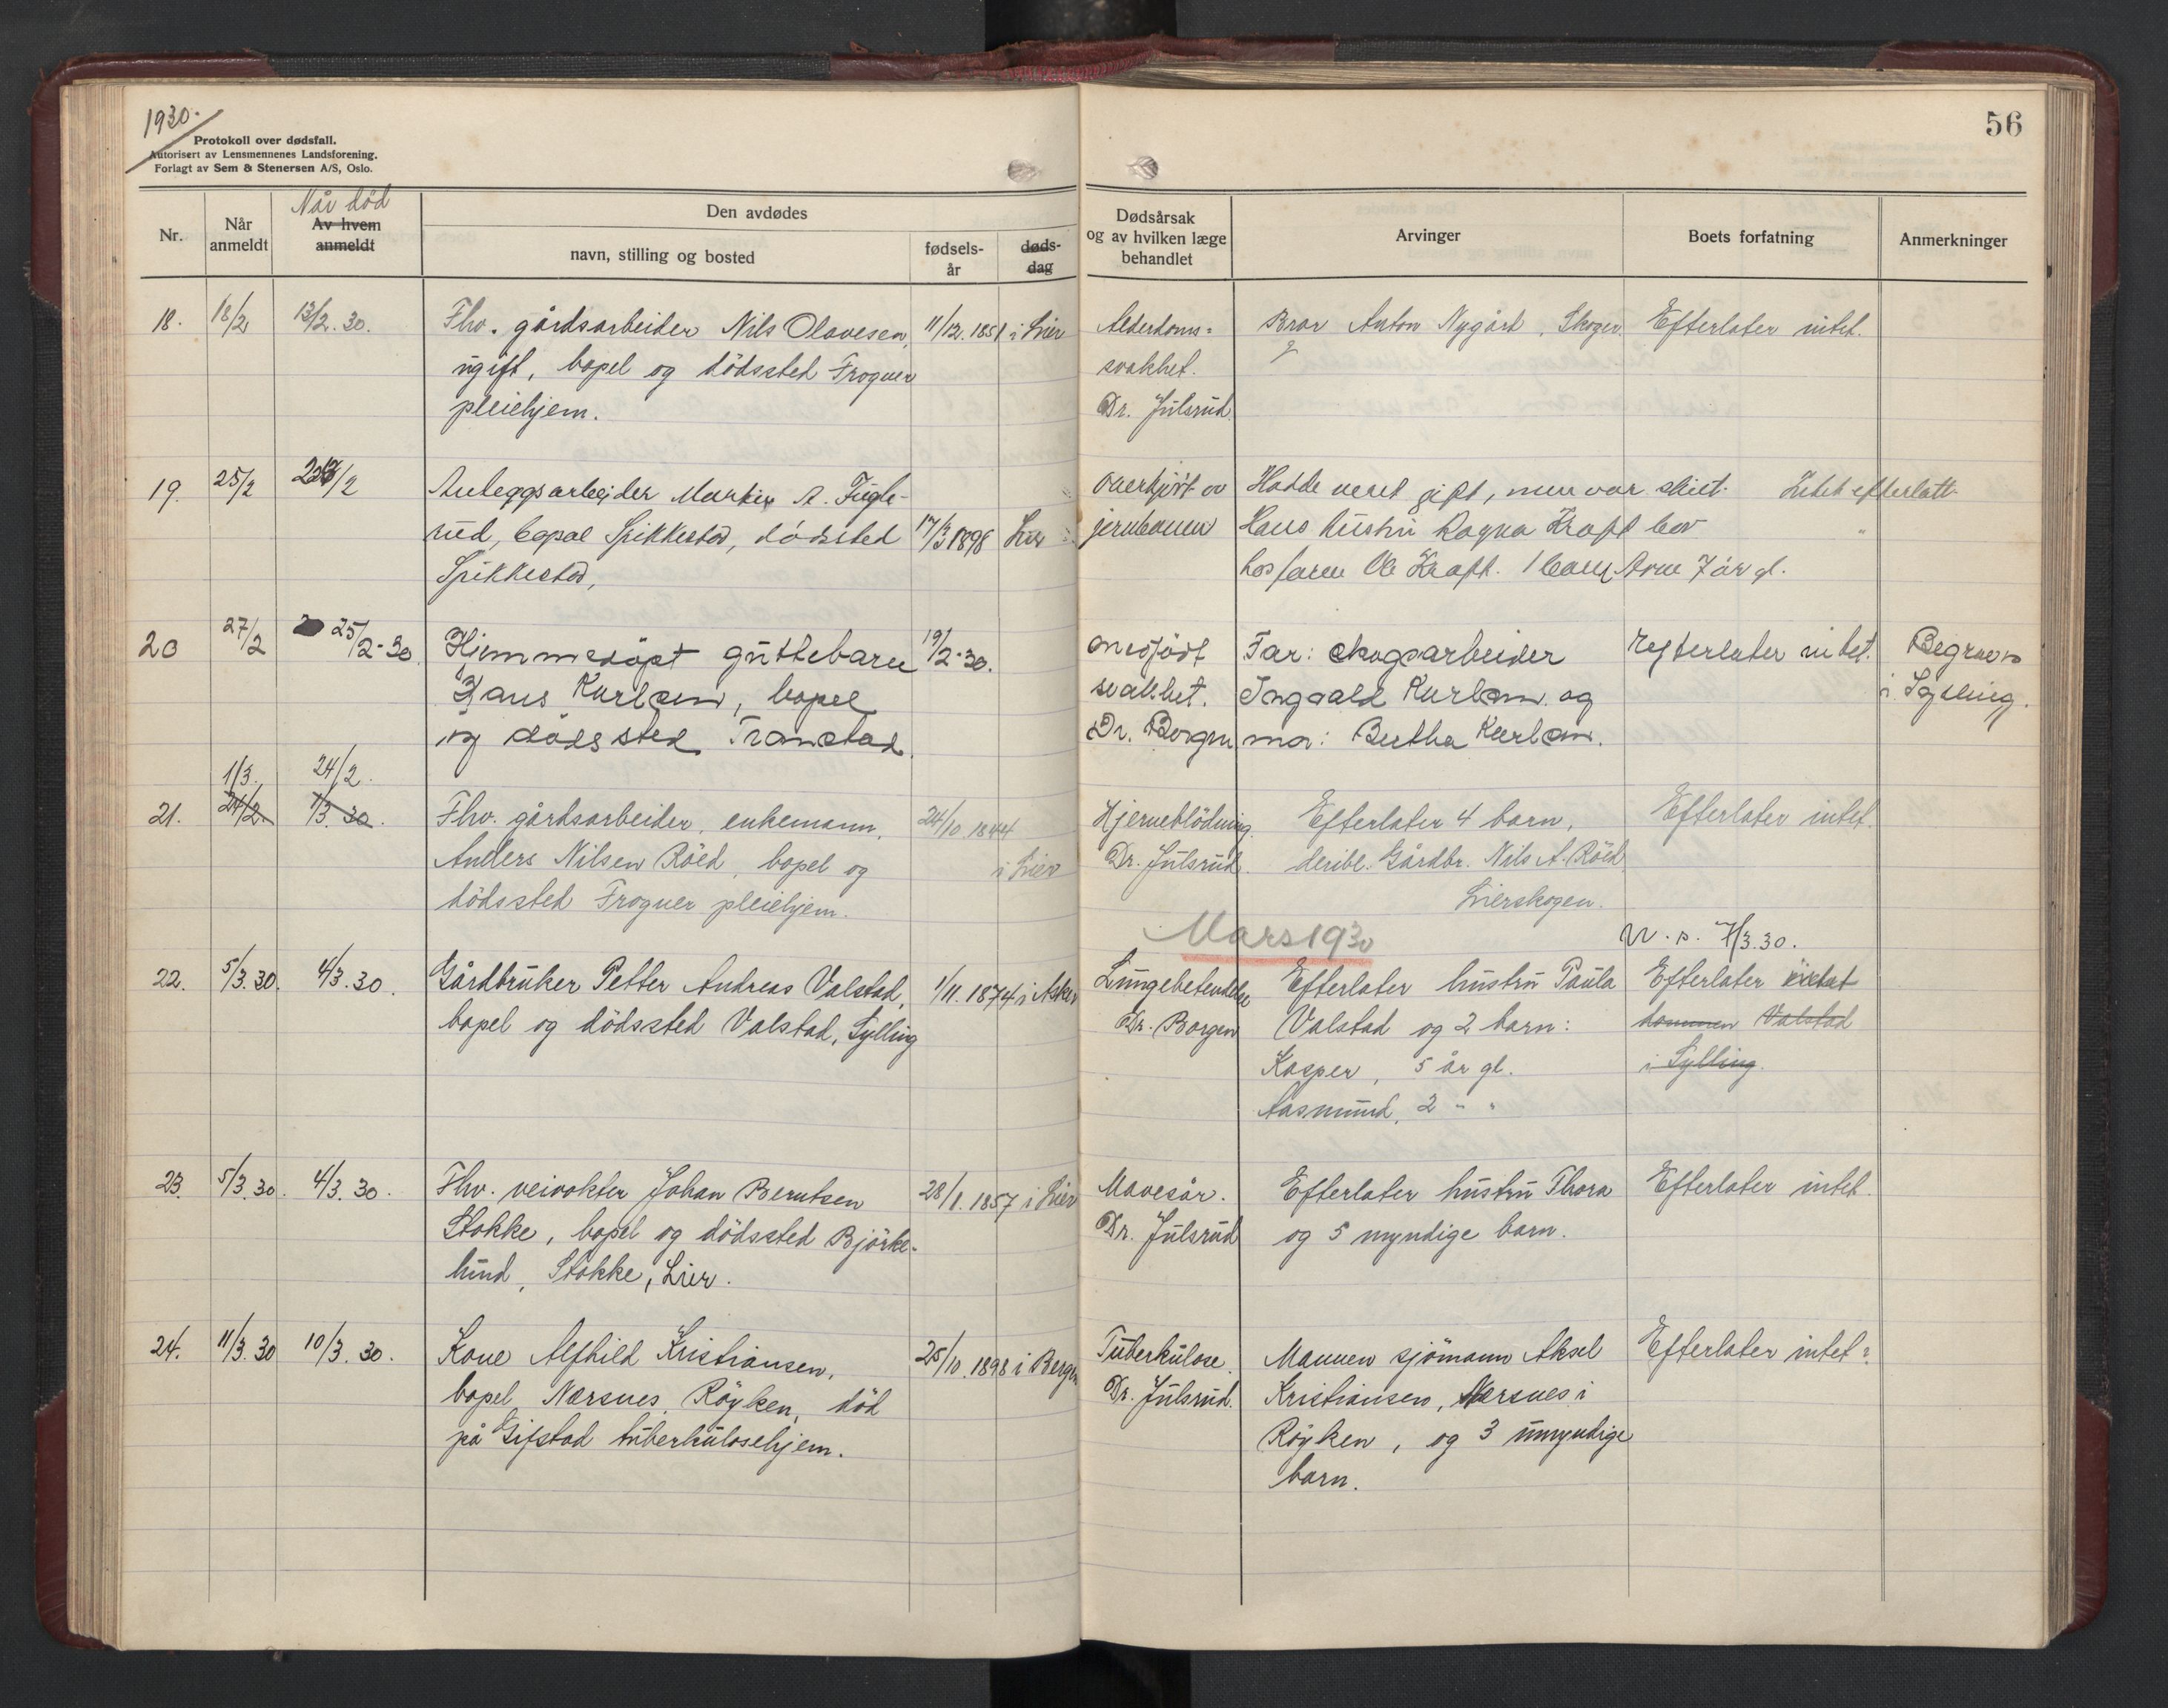 1930.
Protokoll over dødsfall.
Autorisert av Lensmennenes Landsforening.
Forlagt av Sem & Stenersen A/S, Oslo.
56
Nr.
Når anmeldt
Når död
Av hvem anmeldt
Den avdødes
navn, stilling og bosted
fødsels-
år
døds-
dag
Dødsårsak
og av hvilken læge
behandlet
Arvinger
Boets forfatning
Anmerkninger
18. 18/2 13/2. 30. Fhv. gårdsarbeider Nils Olavesen, 11/12. 1851 i Lier Alderdoms= Bror Anton Nygård, Skoger. Efterlater intet.
ugift, bopel og dödssted Frogner svakhet.
pleiehjem. Dr. Julsrud.
19. 25/2 /2 Anleggsarbeider A. Fugle- Overkjört av Hadde veret gift, men var skilt. Intet efterlatt.
rud, bopæl Spikkestad, dödssted 17/3 1898 Lier jernbanen Hans hustru Ragna Kraft bor
Spikkestad, hos faren Ole Kraft. 1 barn Arne 7 år gl.
20 27/2 25/2-30. Hjemmedöpt guttebarn 19/2-30. Medfödt Far: skogsarbeider Efterlater intet. Begraves
Hans , bopel svakhet. Ingvald og i Sylling.
og dödssted Transtad. Dr. Borgen mor: Bertha
1/3. 24/2.
21. 24/2. 1/3. 30. Fhv. gårdsarbeider, enkemann, 24/10 1844 Hjerneblödning. Efterlater 4 barn, Efterlater intet.
Anders Nilsen Röed, bopel og i Lier Dr. Julsrud. deribl. Gårdbr. Nils A. Röed
dödssted Frogner pleiehjem. Lierskogen.
Mars 1930 7/3.30.
22. 5/3.30. 4/3.30. Gårdbruker Petter Andreas Valstad, 1/11. 1874 i Asker Lungebetendelse Efterlater hustru Paula Efterlater
bopel og dödssted Valstad, Sylling Dr. Borgen Valstad og 2 barn: Valstad
Kasper, 5 år gl. i Sylling.
Aasmund, 2 " "
23. 5/3.30. 4/3.30. Fhv. veivokter Johan Berntsen 28/1. 1857 i Lier Mavesår. Efterlater hustru Thora Efterlater intet.
Stokke, bopel og dödssted Björke- Dr. Julsrud og 5 myndige barn.
lund, Stokke, Lier.
24. 11/3.30 10/3.30. Kone Alfhild Kristiansen, 25/10.1898 i Bergen Tuberkulose. Mannen sjömann Aksel Efterlater intet.
bopel Nærsnes, Röyken, död Dr. Julsrud. Kristiansen, Nærsnes i
på Gifstad tuberkulosehjem. Röyken, og 3 umyndige
barn.